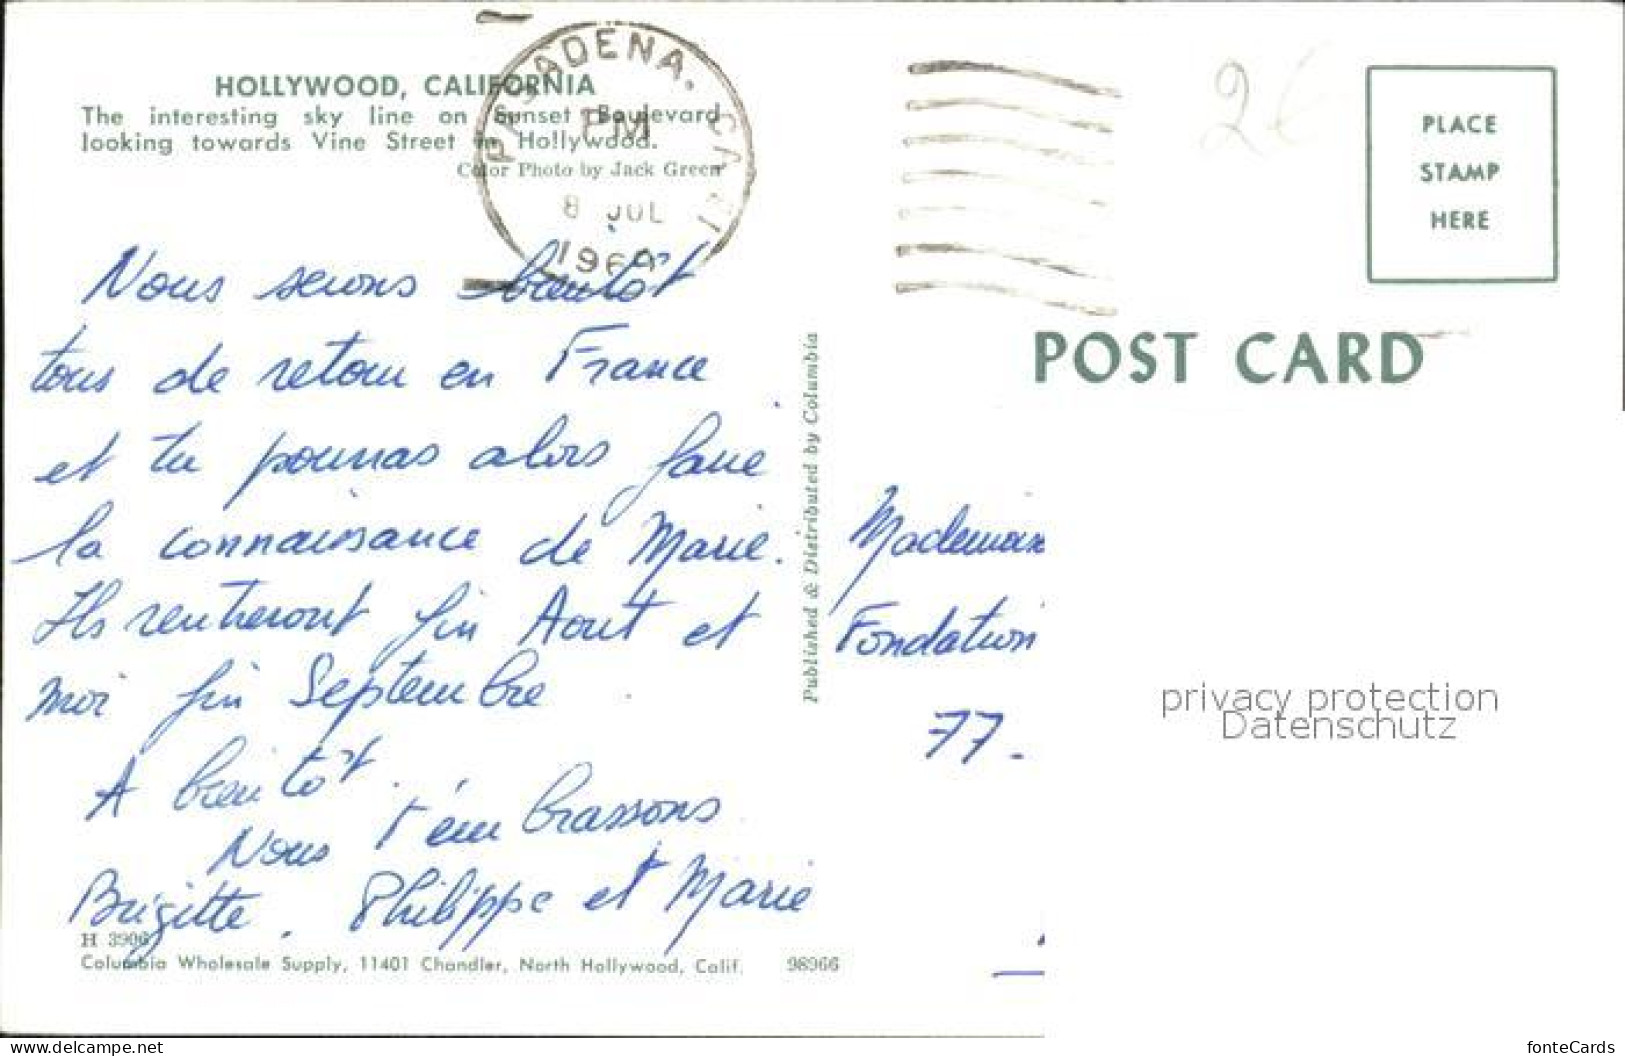 HOLLYWOOD, CALIFORNIA
The interesting sky line on Sunset Boulevard
looking towards Vine Street in Hollywood.
Color Photo by Jack Green
PASADENA, CALIF
PM
8 JUL
1969
2€
PLACE
STAMP
HERE
POST CARD
Nous serons bientôt
tous de retour en France
et tu pourras alors faire
la connaissance de Marie.
Ils rentreront fin Aout et
moi fin Septembre
A bientôt.
Nous t'embrassons
Brigitte. Philippe et Marie
Published & Distributed by Columbia
Mademois
Fondation
77.
privacy protection
Datenschutz
H 3906
Columbia Wholesale Supply, 11401 Chandler, North Hollywood, Calif. 98966
www.delcampe.net
fonteCards